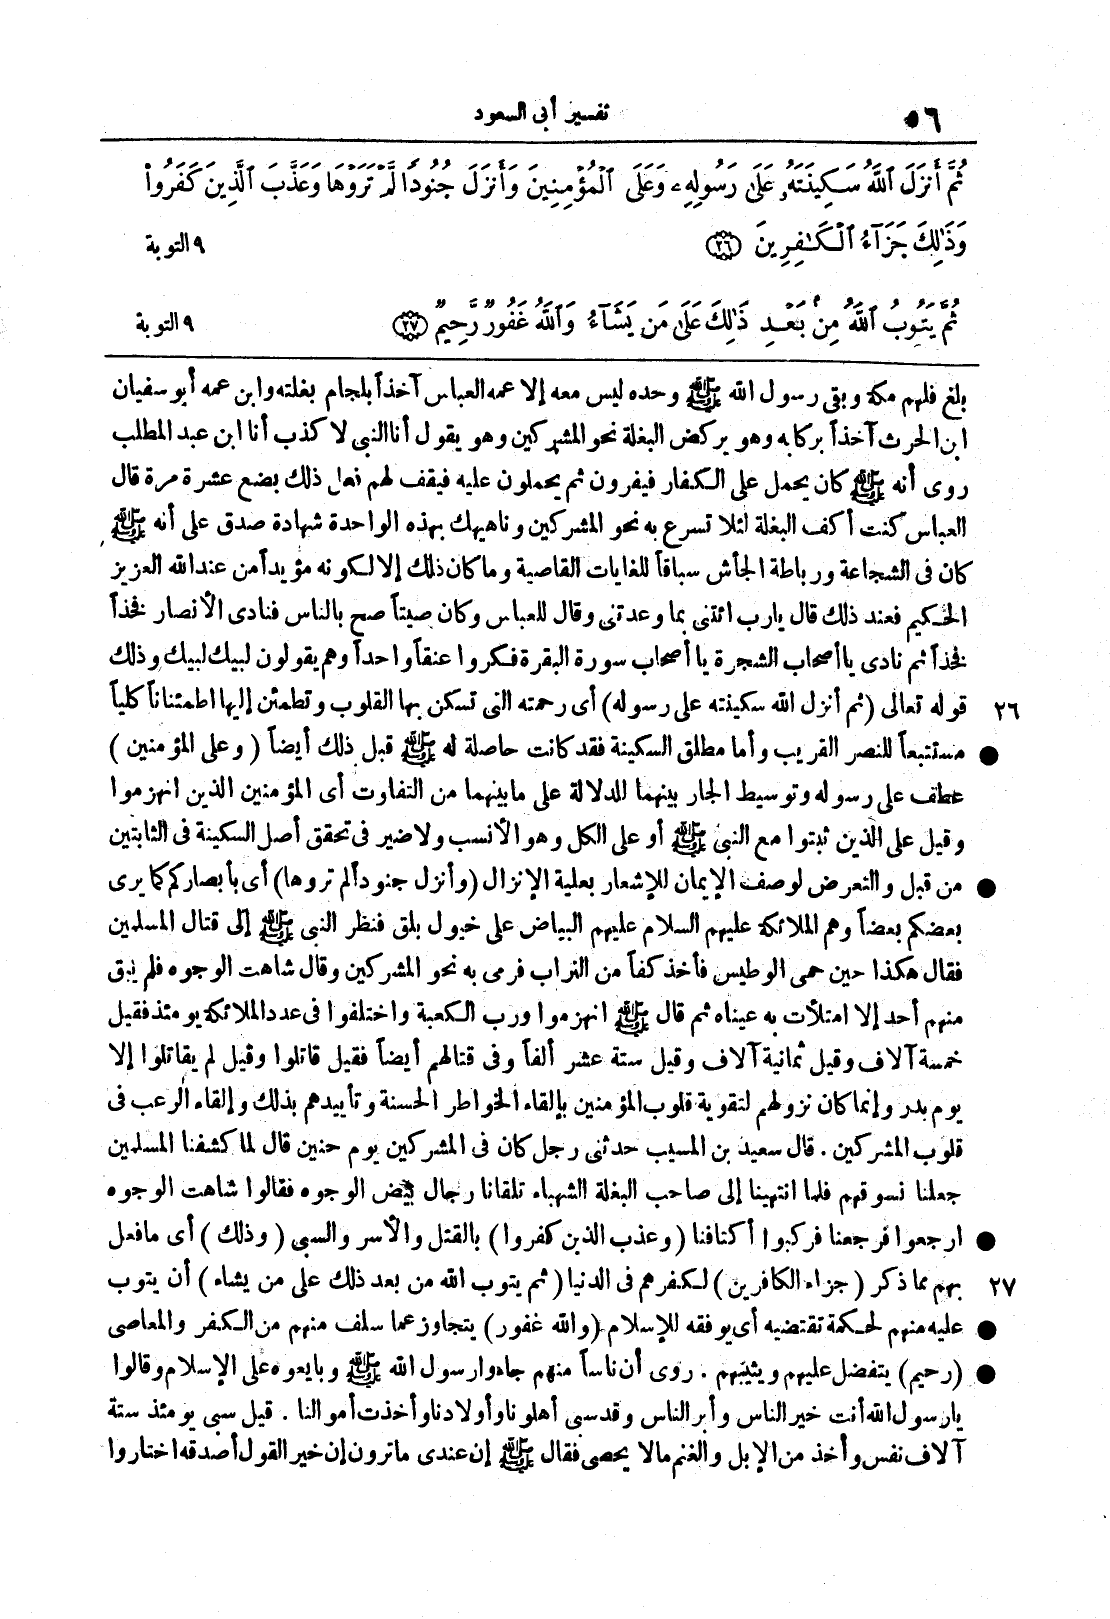 ٥٦
تفسير أبى السعود
ثُمَّ أَنزَلَ ٱللَّهُ سَكِينَتَهُۥ عَلَىٰ رَسُولِهِۦ وَعَلَى ٱلْمُؤْمِنِينَ وَأَنزَلَ جُنُودًا لَّمْ تَرَوْهَا وَعَذَّبَ ٱلَّذِينَ كَفَرُوا۟
وَذَٰلِكَ جَزَآءُ ٱلْكَـٰفِرِينَ ٢٦ ٩ التوبة
ثُمَّ يَتُوبُ ٱللَّهُ مِنۢ بَعْدِ ذَٰلِكَ عَلَىٰ مَن يَشَآءُ وَٱللَّهُ غَفُورٌ رَّحِيمٌ ٢٧ ٩ التوبة
بلغ فلهم مكة وبقى رسول الله ﷺ وحده ليس معه إلا عمه العباس آخذاً بلجام بغلته وابن عمه أبو سفيان
ابن الحرث آخذاً بركابه وهو يركض البغلة نحو المشركين وهو يقول أنا النبى لا كذب أنا ابن عبد المطلب
روى أنه ﷺ كان يحمل على الكفار فيفرون ثم يحملون عليه فيقف لهم فعل ذلك بضع عشرة مرة قال
العباس كنت أكف البغلة لئلا تسرع به نحو المشركين وناهيك بهذه الواحدة شهادة صدق على أنه ﷺ
كان فى الشجاعة ورباطة الجأش سباقاً للغايات القاصية وما كان ذلك إلا لكونه مؤيداً من عند الله العزيز
الحكيم فعند ذلك قال يارب ائتنى بما وعدتنى وقال للعباس وكان صيتاً صح بالناس فنادى الأنصار فخذاً
فخذاً ثم نادى يا أصحاب الشجرة يا أصحاب سورة البقرة فكروا عنقاً واحداً وهم يقولون لبيك لبيك وذلك
٢٦ قوله تعالى (ثم أنزل الله سكينته على رسوله) أى رحمته التى تسكن بها القلوب وتطمئن إليها اطمئناناً كلياً
● مستتبعاً للنصر القريب وأما مطلق السكينة فقد كانت حاصلة له ﷺ قبل ذلك أيضاً (وعلى المؤمنين)
عطف على رسوله وتوسيط الجار بينهما للدلالة على ما بينهما من التفاوت أى المؤمنين الذين انهزموا
وقيل على الذين ثبتوا مع النبى ﷺ أو على الكل وهو الأنسب ولا ضير فى تحقق أصل السكينة فى الثابتين
● من قبل والتعرض لوصف الإيمان للإشعار بعلية الإنزال (وأنزل جنوداً لم تروها) أى بأبصاركم كما يرى
بعضكم بعضاً وهم الملائكة عليهم السلام عليهم البياض على خيول بلق فنظر النبى ﷺ إلى قتال المسلمين
فقال هكذا حين حمى الوطيس فأخذ كفاً من التراب فرمى به نحو المشركين وقال شاهت الوجوه فلم يبق
منهم أحد إلا امتلأت به عيناه ثم قال ﷺ انهزموا ورب الكعبة واختلفوا فى عدد الملائكة يومئذ فقيل
خمسة آلاف وقيل ثمانية آلاف وقيل ستة عشر ألفاً وفى قتالهم أيضاً فقيل قاتلوا وقيل لم يقاتلوا إلا
يوم بدر وإنما كان نزولهم لتقوية قلوب المؤمنين بإلقاء الخواطر الحسنة وتأييدهم بذلك وإلقاء الرعب فى
قلوب المشركين . قال سعيد بن المسيب حدثنى رجل كان فى المشركين يوم حنين قال لما كشفنا المسلمين
جعلنا نسوقهم فلما انتهينا إلى صاحب البغلة الشهباء تلقانا رجال بيض الوجوه فقالوا شاهت الوجوه
● ارجعوا فرجعنا فركبوا أكتافنا (وعذب الذين كفروا) بالقتل والأسر والسبى (وذلك) أى ما فعل
٢٧ بهم مما ذكر (جزاء الكافرين) لكفرهم فى الدنيا (ثم يتوب الله من بعد ذلك على من يشاء) أن يتوب
● عليه منهم لحكمة تقتضيه أى يوفقه للإسلام (والله غفور) يتجاوز عما سلف منهم من الكفر والمعاصى
● (رحيم) يتفضل عليهم ويثيبهم . روى أن ناساً منهم جاءوا رسول الله ﷺ وبايعوه على الإسلام وقالوا
يارسول الله أنت خير الناس وأبر الناس وقد سبى أهلونا وأولادنا وأخذت أموالنا . قيل سبى يومئذ ستة
آلاف نفس وأخذ من الإبل والغنم مالا يحصى فقال ﷺ إن عندى ما ترون إن خير القول أصدقه اختاروا